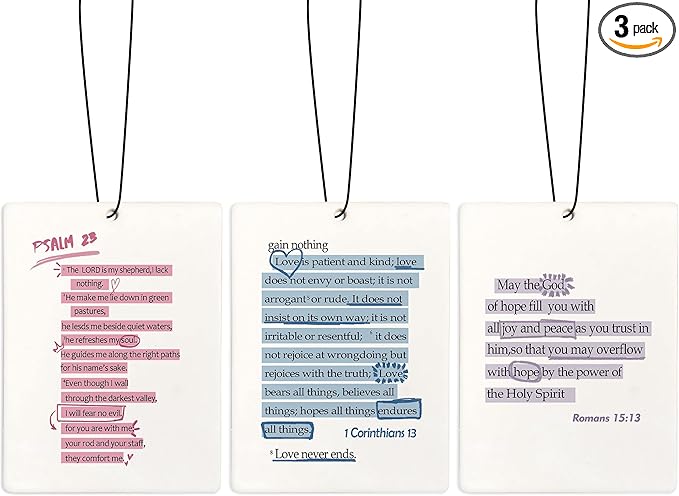 3 pack
PSALM 23
¹ The LORD is my shepherd, I lack
nothing.
²He make me lie down in green
pastures,
he lesds me beside quiet waters,
³he refreshes my soul.
He guides me along the right paths
for his name's sake.
⁴Even though I wall
through the darkest valley,
I will fear no evil,
for you are with me;
your rod and your staff,
they comfort me.
gain nothing
⁴ Love is patient and kind; love
does not envy or boast; it is not
arrogant ⁵ or rude. It does not
insist on its own way; it is not
irritable or resentful; ⁶ it does
not rejoice at wrongdoing but
rejoices with the truth. ⁷Love
bears all things, believes all
things; hopes all things endures
all things.
1 Corinthians 13
⁸ Love never ends.
May the God
of hope fill you with
all joy and peace as you trust in
him,so that you may overflow
with hope by the power of
the Holy Spirit
Romans 15:13